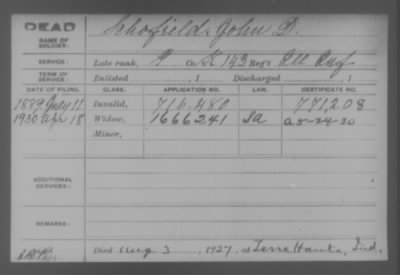 DEAD
NAME OF SOLDIER: Schofield, John D.
SERVICE: Late rank, P Co. K 143 Reg't Ill Inf
TERM OF SERVICE: Enlisted , 1 Discharged , 1
DATE OF FILING. CLASS. APPLICATION NO. LAW. CERTIFICATE NO.
1889 July 12 Invalid, 716.480 771,208
1930 Apr 18 Widow, 1666241 Sa
Minor,
ADDITIONAL SERVICES:
REMARKS:
Died Aug 3, 1927, at Terre Haute, Ind.